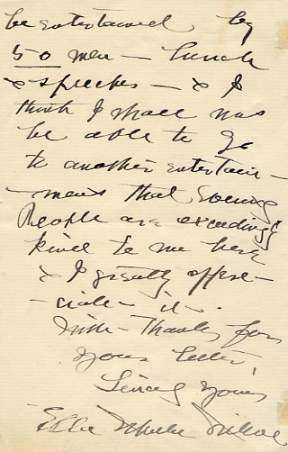 be entertained by
50 men - Lunch
& speeches - & I
think I shall not
be able to go
to another entertain-
-ment that evening
People are exceedingly
kind to me here
& I greatly appre-
-ciate it.
With Thanks for
yours letter,
Sincerely yours
Ella Wheeler Wilcox